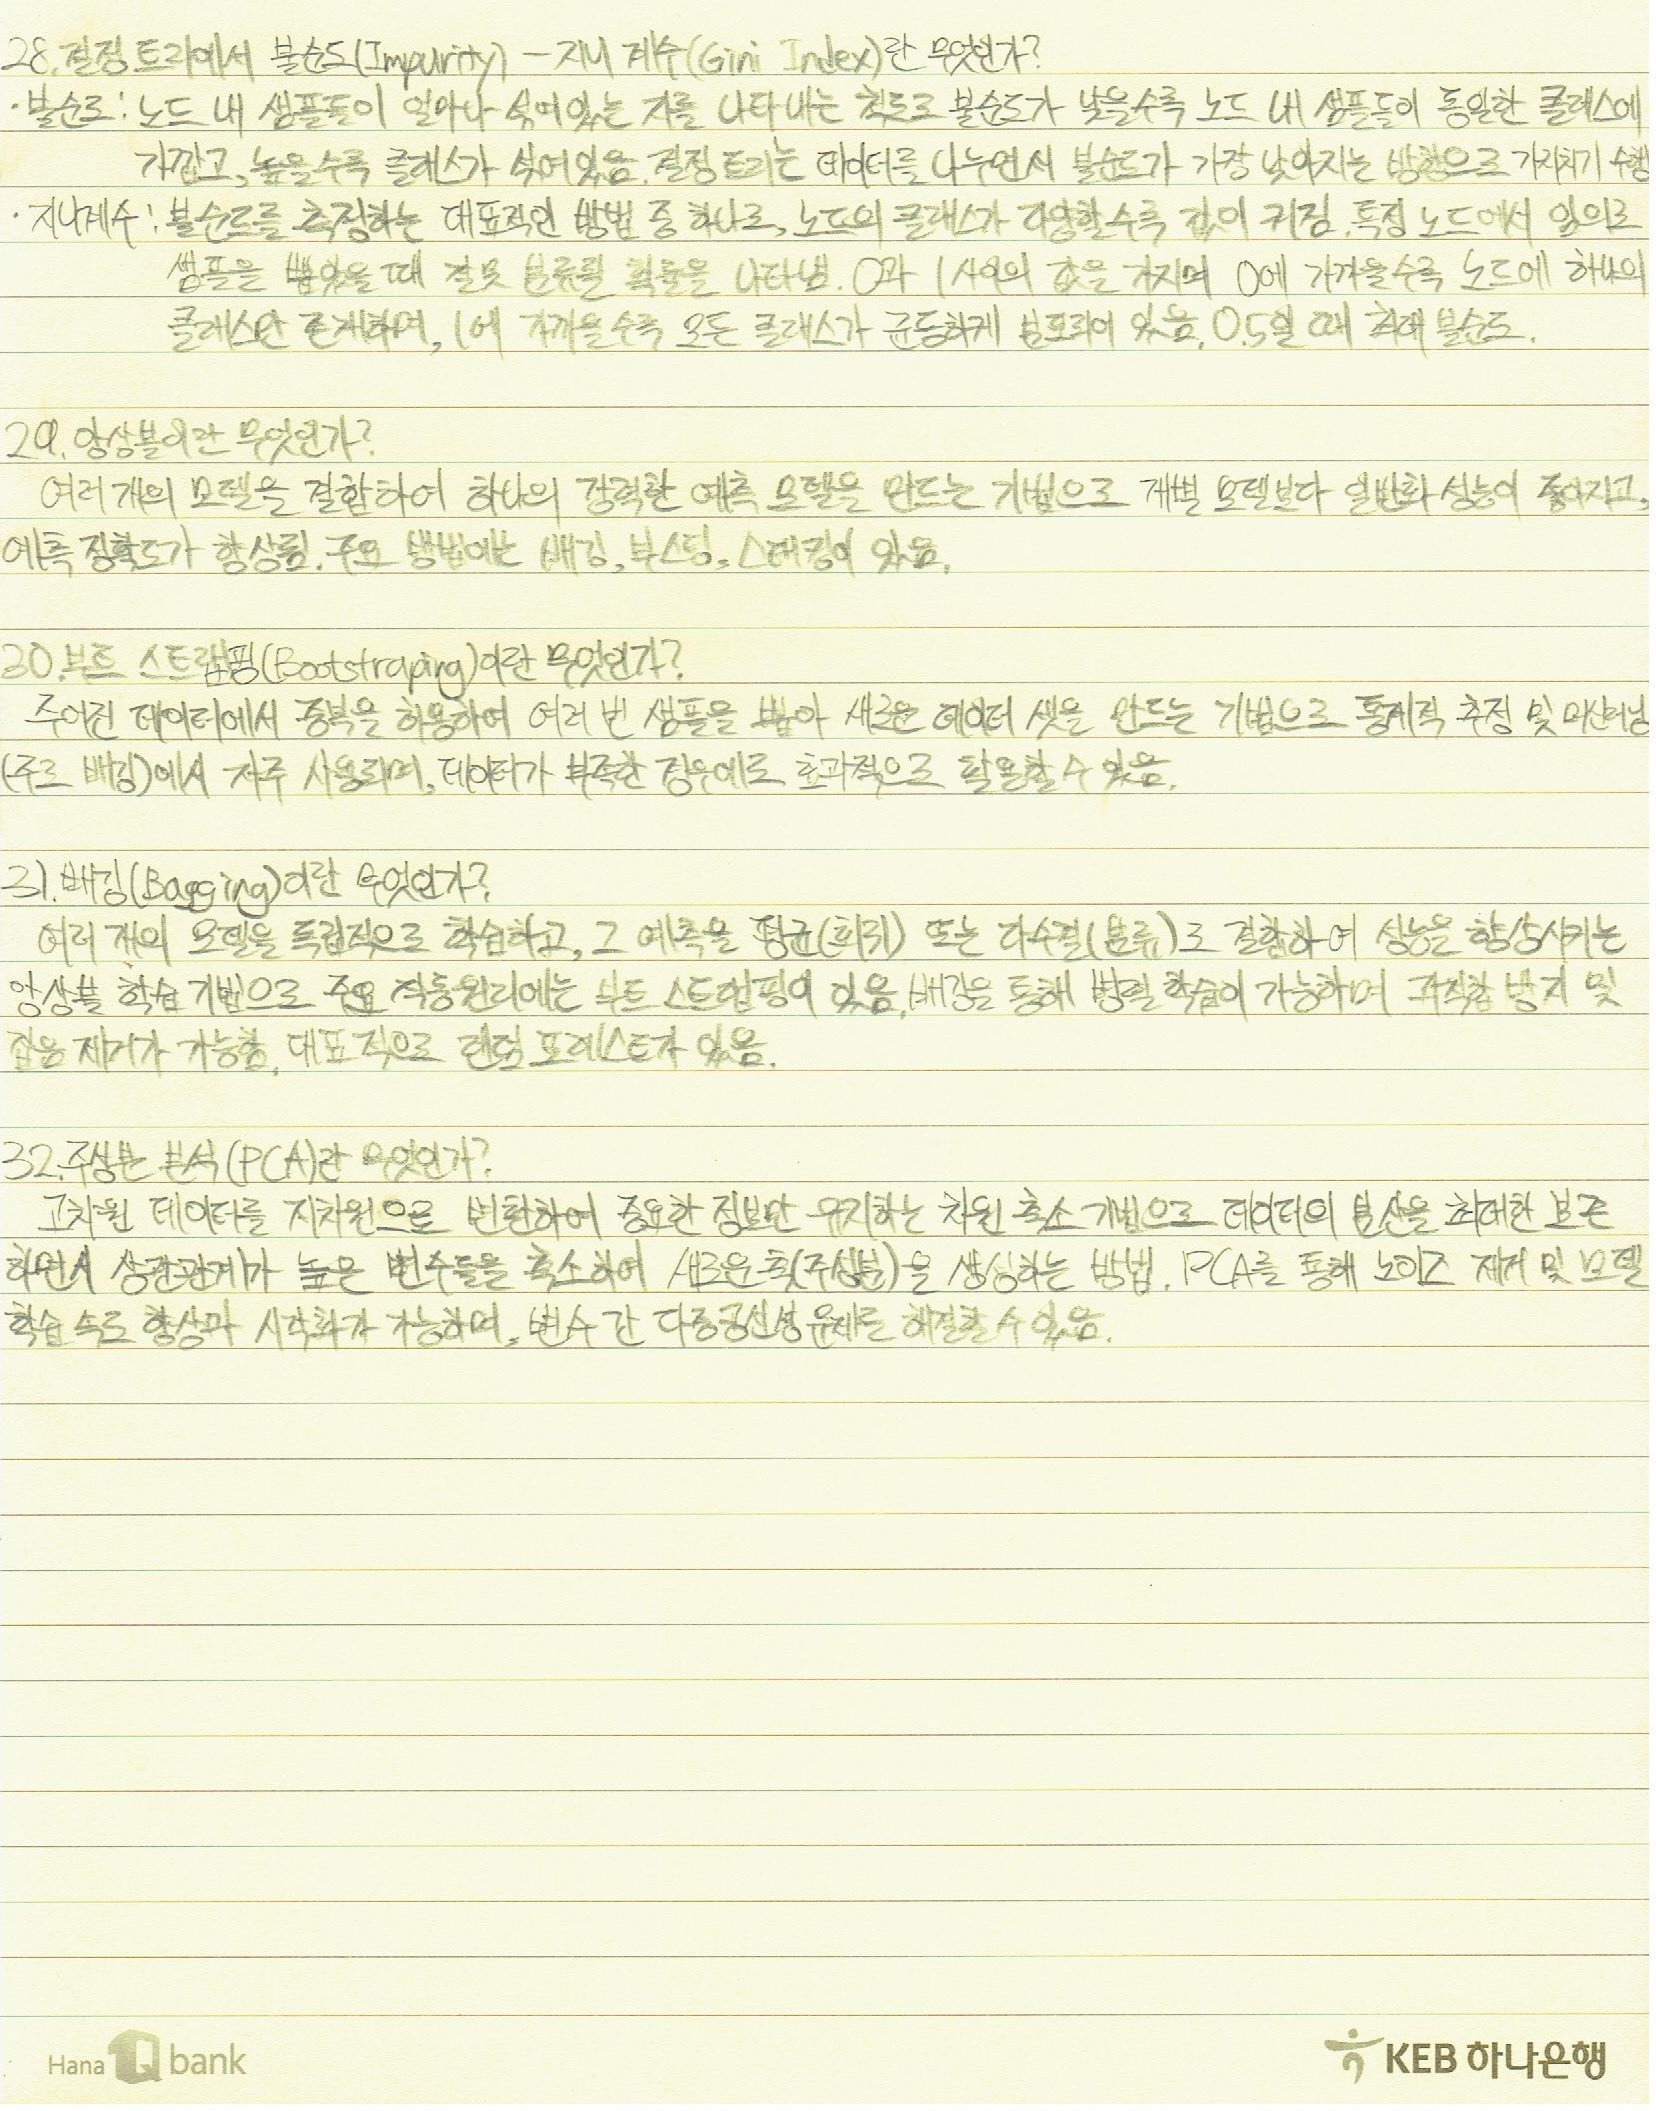 28. 결정 트리에서 불순도(Impurity) - 지니 계수(Gini Index)란 무엇인가?
· 불순도: 노드 내 샘플들이 얼마나 섞여있는 지를 나타내는 척도로 불순도가 낮을수록 노드 내 샘플들이 동일한 클래스에
가깝고, 높을수록 클래스가 섞여있음. 결정 트리는 데이터를 나누면서 불순도가 가장 낮아지는 방향으로 가지치기 수행
· 지니계수: 불순도를 측정하는 대표적인 방법 중 하나로, 노드의 클래스가 다양할수록 값이 커짐. 특정 노드에서 임의로
샘플을 뽑았을 때 잘못 분류될 확률을 나타냄. 0과 1사이의 값을 가지며 0에 가까울수록 노드에 하나의
클래스만 존재하며, 1에 가까울수록 모든 클래스가 균등하게 분포되어 있음. 0.5일 때 최대 불순도.
29. 앙상블이란 무엇인가?
여러 개의 모델을 결합하여 하나의 강력한 예측 모델을 만드는 기법으로 개별 모델보다 일반화 성능이 좋아지고,
예측 정확도가 향상됨. 주요 방법에는 배깅, 부스팅, 스태킹이 있음.
30. 부트 스트랩핑(Bootstraping)이란 무엇인가?
주어진 데이터에서 중복을 허용하여 여러 번 샘플을 뽑아 새로운 데이터 셋을 만드는 기법으로 통계적 추정 및 머신러닝
(주로 배깅)에서 자주 사용되며, 데이터가 부족한 경우에도 효과적으로 활용할 수 있음.
31. 배깅(Bagging)이란 무엇인가?
여러 개의 모델을 독립적으로 학습하고, 그 예측을 평균(회귀) 또는 다수결(분류)로 결합하여 성능을 향상시키는
앙상블 학습 기법으로 주요 작동원리에는 부트 스트랩핑이 있음. 배깅을 통해 병렬 학습이 가능하며 과적합 방지 및
잡음 제거가 가능함. 대표적으로 랜덤 포레스트가 있음.
32. 주성분 분석(PCA)란 무엇인가?
고차원 데이터를 저차원으로 변환하여 중요한 정보만 유지하는 차원 축소 기법으로 데이터의 분산을 최대한 보존
하면서 상관관계가 높은 변수들을 축소하여 새로운 축(주성분)을 생성하는 방법. PCA를 통해 노이즈 제거 및 모델
학습 속도 향상과 시각화가 가능하며, 변수 간 다중공선성 문제를 해결할 수 있음.
Hana 1Q bank
KEB 하나은행